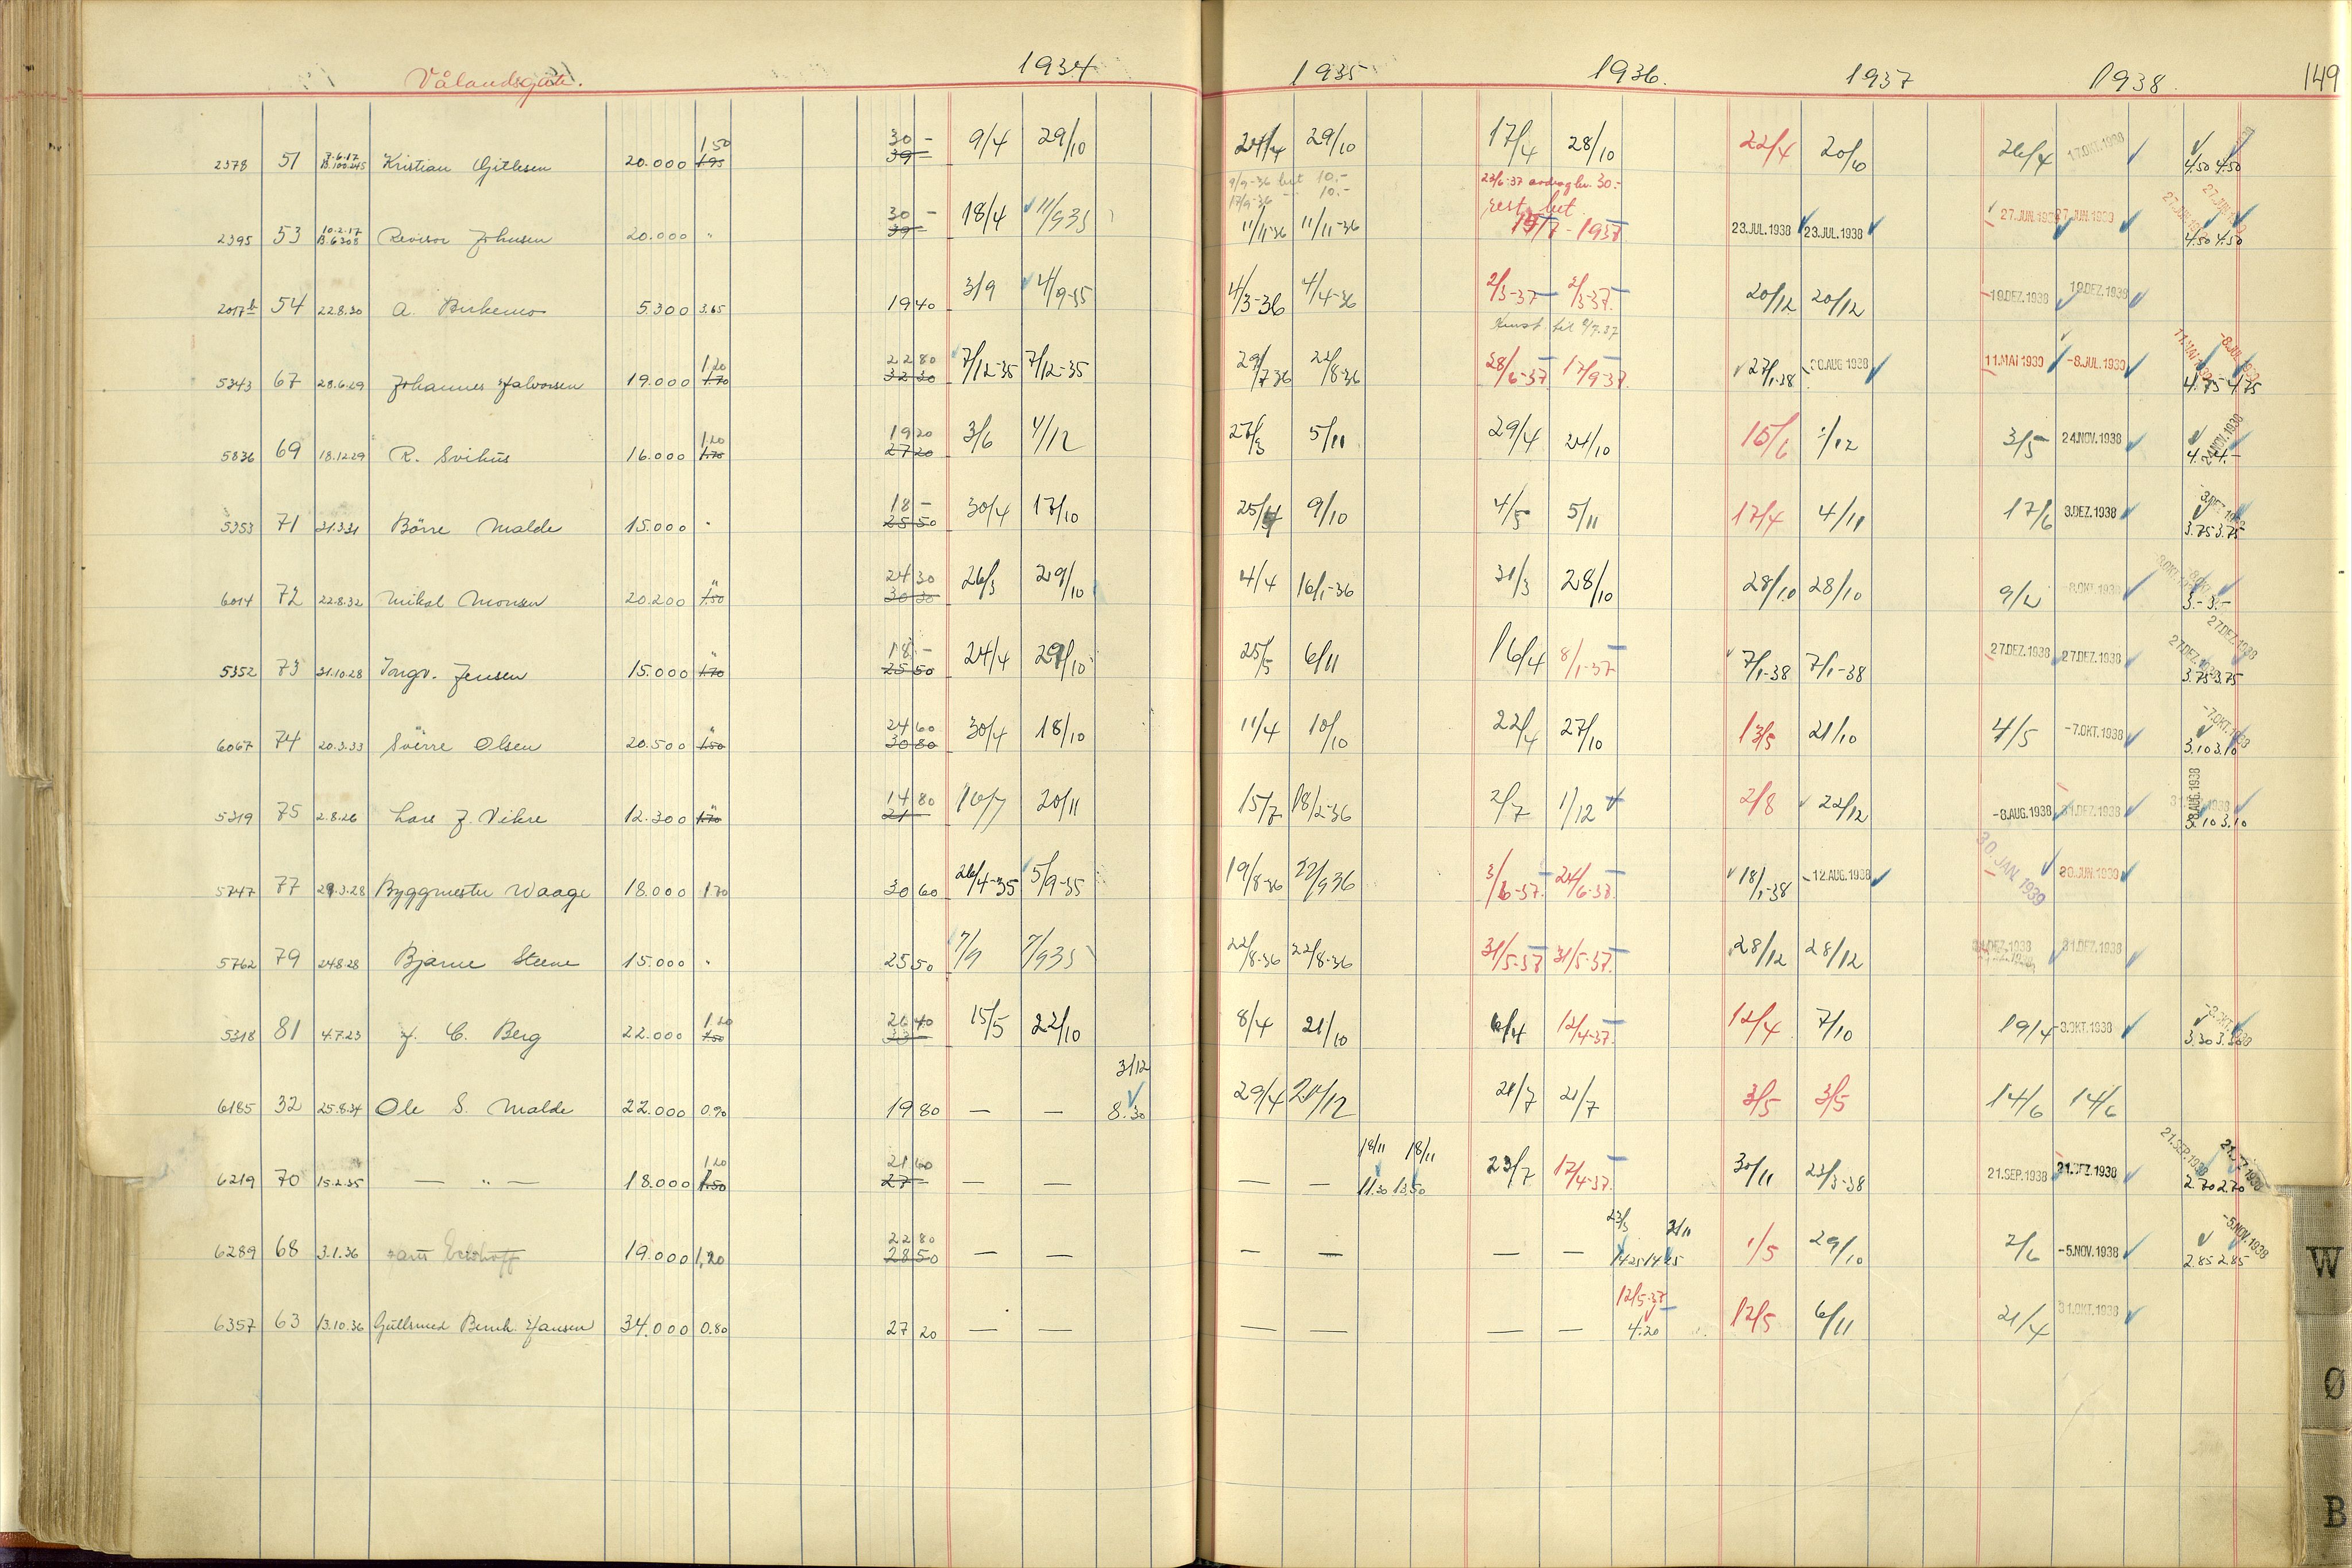 Vålandsgate. 1934 1935 1936. 1937 1938. 149
2378 51 7.6.17 B.100.245 Kristian Gitlesen 20.000 1.50 1.95 30 - 39 - 9/4 29/10 24/4 29/10 17/4 28/10 22/4 20/10 26/4 17.OKT.1938 4.50 4.50
9/9-36 bet 10.- 23/6-37 avdrag kr. 30.-
17/9-36 - 10.- rest bet.
2395 53 10.2.17 B.6308 Revisor Johnsen 20.000 " 30 - 39 - 18/4 11/9 35 11/11-36 11/11-36 15/7-1937 23.JUL.1938 23.JUL.1938 27.JUN.1939 27.JUN.1939 27.JUN.1939 27.JUN.1939 4.50 4.50
2017b 54 22.8.30 A. Birkemo 5.300 3.65 19 40 3/9 4/9-35 4/3-36 4/4-36 2/3-37 2/3-37. 20/12 20/12 19.DEZ.1938 19.DEZ.1938
5343 67 28.6.29 Johannes Halvorsen 19.000 1.20 1.70 22 80 32 30 7/12-35 7/12-35 29/7 36 22/8-36 28/6-37 17/9-37. 27/1-38 30.AUG 1938 11.MAI 1939 -8.JUL.1939 11.MAI 1939 -8.JUL.1939 4.75 4.75
5836 69 18.12.29 R. Svihus 16.000 1.20 1.70 19 20 27 20 3/6 4/12 27/3 5/11 29/4 24/10 15/6 1/12 3/5 24.NOV.1938 24.NOV.1938 4.- 4.-
5353 71 31.3.31 Børre Malde 15.000 " 18 - 25 50 30/4 17/10 25/4 9/10 4/5 5/11 17/4 4/11 17/6 3.DEZ.1938 3.DEZ.1938 3.75 3.75
6014 72 22.8.32 Mikal Monsen 20.200 " 1.50 24 30 30 30 26/3 29/10 4/4 16/1-36 31/3 28/10 28/10 28/10 9/6 -8.OKT.1938 3.- 3.-
5352 73 31.10.28 Ingv. Jensen 15.000 " 1.70 18 - 25 50 24/4 29/10 25/5 6/11 16/4 8/1-37 7/1-38 7/1-38 27.DEZ.1938 27.DEZ.1938 27.DEZ.1938 27.DEZ.1938 3.75 3.75
6067 74 20.3.33 Sverre Olsen 20.500 " 1.50 24 60 30 80 30/4 18/10 11/4 10/10 22/4 27/10 13/5 21/10 4/5 -7.OKT.1938 -7.OKT.1938 3.10 3.10
5319 75 2.8.26 Lars J. Vikre 12.300 " 1.70 14 80 21 - 16/7 20/11 15/7 18/2-36 2/7 1/12 2/8 22/12 -8.AUG.1938 31.DEZ.1938 -8.AUG.1938 3.10 3.10
5747 77 29.3.28 Byggmester Waage 18.000 1 70 30 60 26/4-35 5/9-35 19/8-36 22/9 36 3/6-37. 24/6-37. 18/1-38 -12.AUG.1938 30.JAN.1939 30.JUN.1939
5762 79 24.8.28 Bjarne Steene 15.000 " 25 50 7/9 7/9 35 22/8-36 22/8-36 31/5-37 31/5-37. 28/12 28/12 31.DEZ.1938 31.DEZ.1938
5318 81 4.7.23 J. C. Berg 22.000 1.20 1.50 26 40 33 - 15/5 22/10 8/4 21/10 6/4 12/4-37. 12/4 7/10 19/4 -3.OKT.1938 -3.OKT.1938 3.30 3.30
6185 32 25.8.34 Ole S. Malde 22.000 0.90 19 80 — — 3/12 8.30 29/4 21/12 21/7 21/7 3/5 3/5 14/6 14/6
6219 70 15.2.35 — " — 18.000 1.20 1.50 21 60 27 - — — — — 18/11 18/11 11.30 13.50 23/7 17/4-37. 30/11 23/3-38 21.SEP.1938 21.DEZ.1938 21.SEP.1938 21.DEZ.1938 2.70 2.70
6289 68 3.1.36 19.000 1,20 22 80 28 50 — — — — — — 23/3 14.25 14.25 1/5 29/10 2/6 -5.NOV.1938 -5.NOV.1938 2.85 2.85
6357 63 13.10.36 Gullsmed Bernh. Hansen 34.000 0.80 27 20 — — — — — — 12/5-37 4.20 12/5 6/11 21/4 31.OKT.1938
W
Ø
B